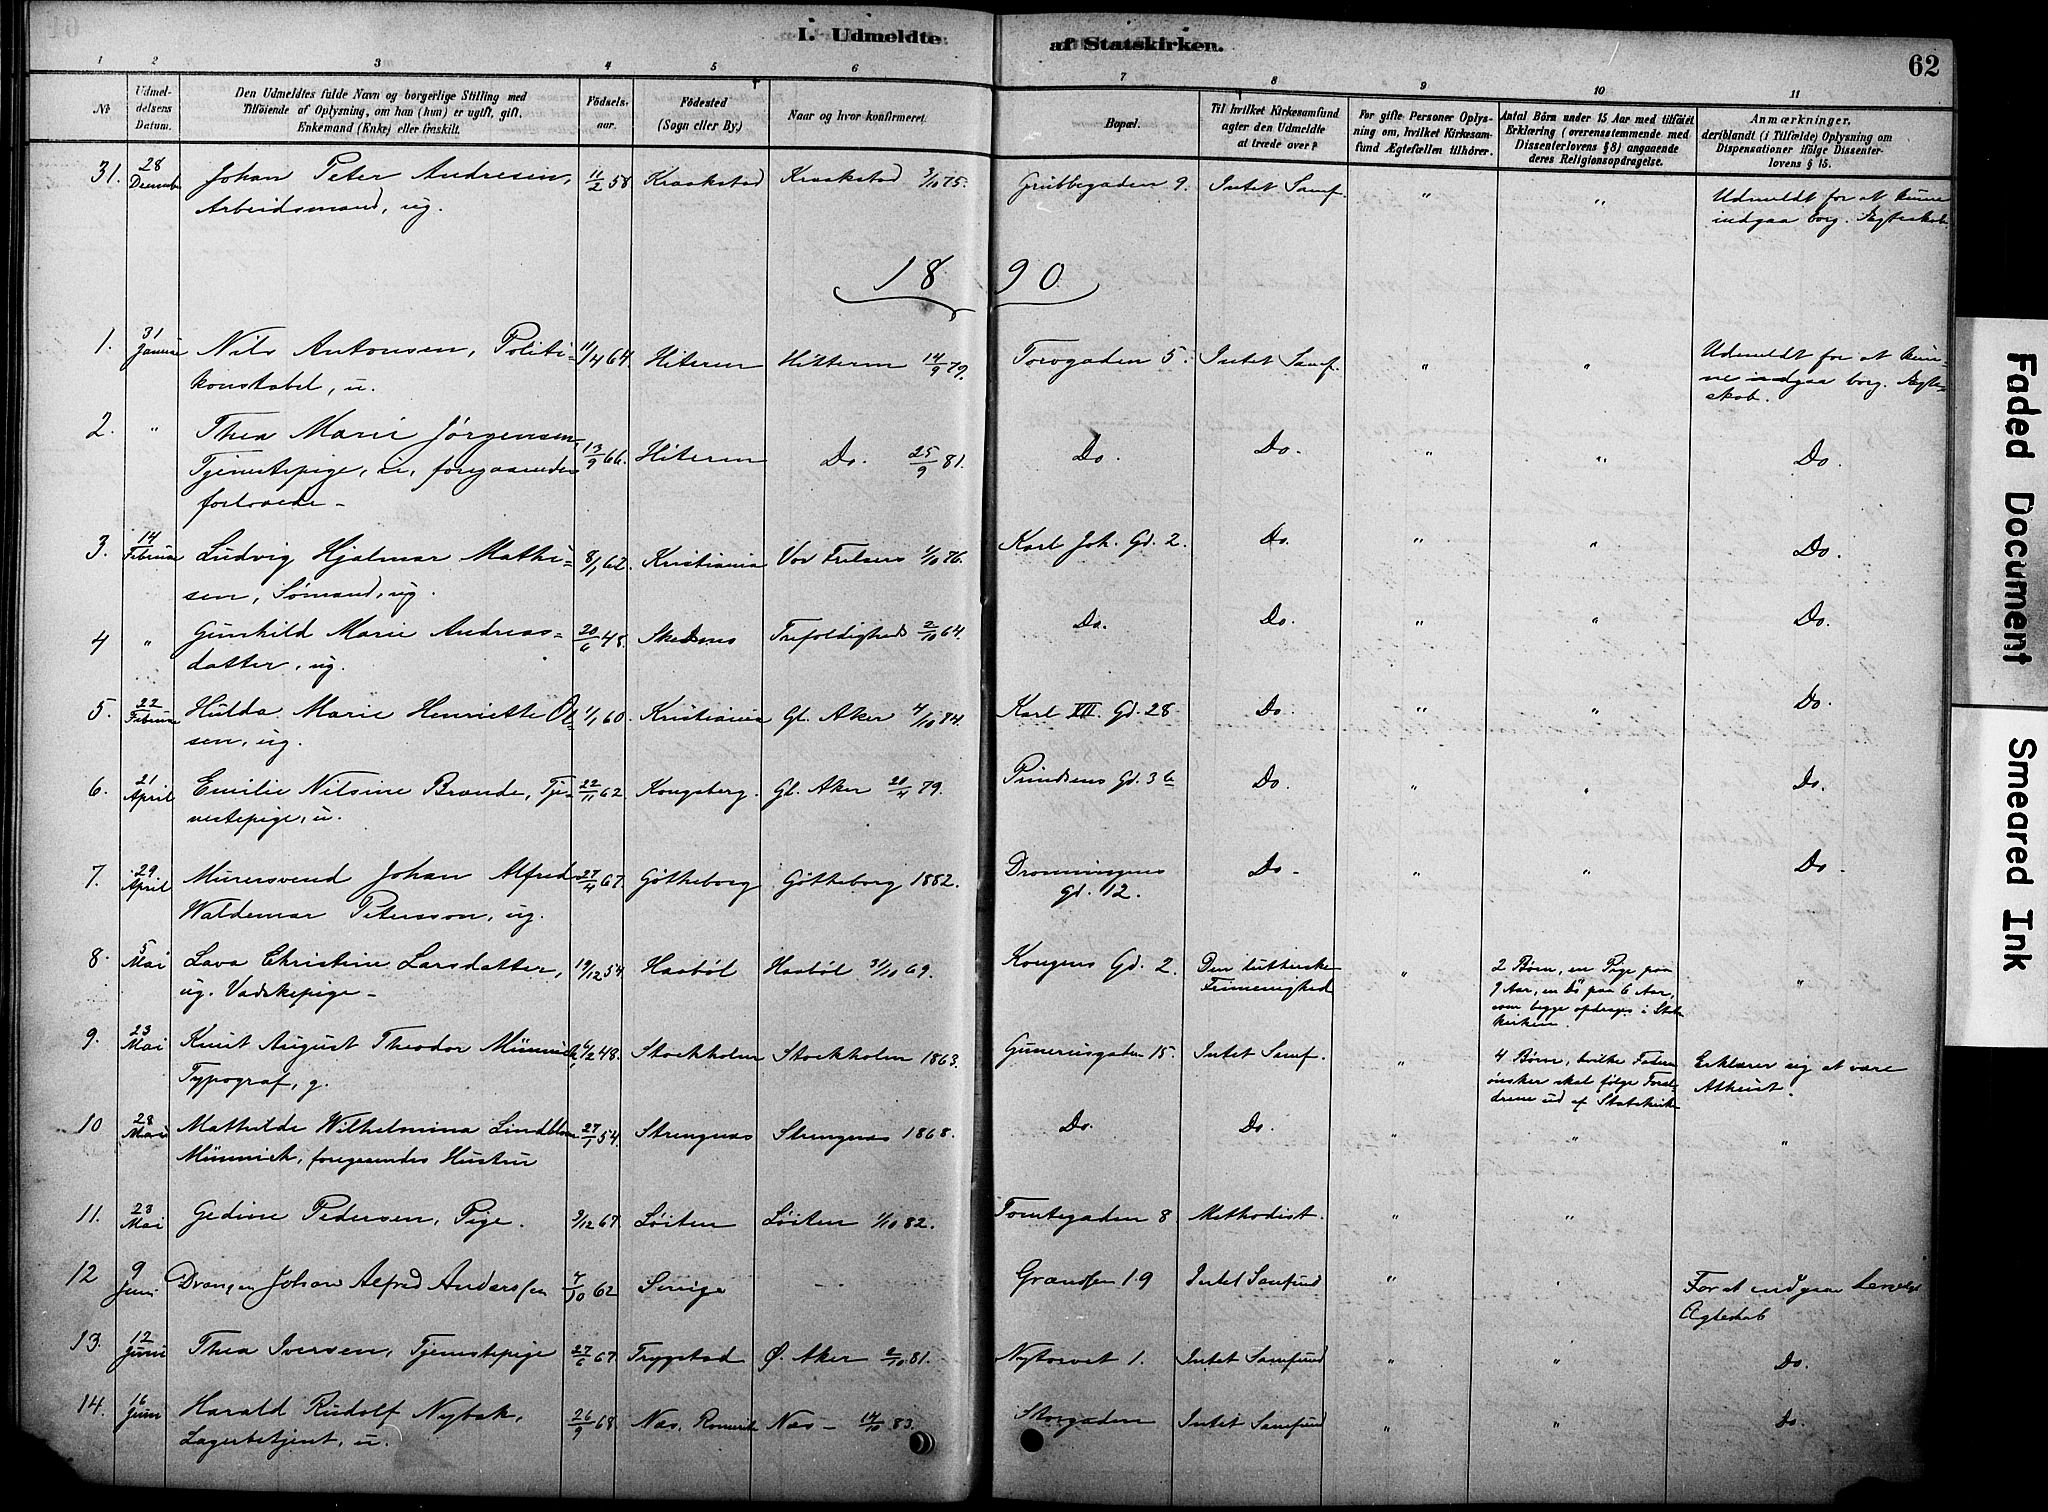 I. Udmeldte af Statskirken.
62
1 2 3 4 5 6 7 8 9 10 11
Nr. | Udmeldelsens Datum. | Den Udmeldtes fulde Navn og borgerlige Stilling med Tilföiende af Oplysning, om han (hun) er ugift, gift, Enkemand (Enke) eller fraskilt. | Födsels-aar. | Födested (Sogn eller By.) | Naar og hvor konfirmeret. | Bopæl. | Til hvilket Kirkesamfund agter den Udmeldte at træde over? | For gifte Personer Oplysning om, hvilket Kirkesamfund Ægtefællen tilhörer. | Antal Börn under 15 Aar med tilföiet Erklæring (overensstemmende med Dissenterlovens § 8) angaaende deres Religionsopdragelse. | Anmærkninger, deriblandt (i Tilfælde) Oplysning om Dispensationer ifölge Dissenterlovens § 15.
31. | 28 December | Johan Peter Andresen, Arbeidsmand, ug. | 11/2 58 | Kraakstad | Kraakstad 3/10 75. | Grubbegaden 9. | Intet Samf. | " | " | Udmeldt for at kunne indgaa borg. Ægteskab.
1890
1. | 31 Januar | Nils Antonsen, Politikonstabel, u. | 11/4 64. | Hiteren | Hitteren 14/9 79. | Torvgaden 5. | Intet Samf. | " | " | Udmeldt for at kunne indgaa borg. Ægteskab.
2. | " | Thea Marie Jørgensen, Tjenestepige, u., foregaaendes forlovede - | 13/9 66. | Hiteren | Do. 25/9 81. | Do. | Do. | " | " | Do.
3. | 14 Februar | Ludvig Hjalmar Mathisen, Sømand, ug. | 8/1 62. | Kristiania | Vor Frelsers 1/10 76. | Karl Joh. Gd. 2. | Do. | " | " | Do.
4 | " | Gunhild Marie Andreasdatter, ug. | 20/6 48. | Skedsmo | Trefoldigheds 2/10 64. | Do. | Do. | " | " | Do.
5. | 22 Februar | Hulda Marie Henriette Olsen, ug. | 1/1 60. | Kristiania | Gl. Aker 4/10 74. | Karl XII. Gd. 28 | Do. | " | " | Do.
6. | 21 April | Emilie Nilsine Brande, Tjenestepige, u. | 22/11 62. | Kongsberg. | Gl. Aker 20/4 79. | Prindsens Gd. 3 b | Do. | " | " | Do.
7. | 29 April | Murersvend Johan Alfred Waldemar Petersson, ug. | 27/4 67. | Götheborg | Götheborg 1882. | Dronningens Gd. 12. | Do - | " | " | Do.
8. | 5 Mai | Lava Christine Larsdatter, ug. Vaskepige - | 19/12 54. | Haabøl | Haabøl 31/10 69. | Kongens Gd. 2. | Den lutherske Frimenighed | " | 2 Børn, en Pige paa 9 Aar, en Do paa 6 Aar, som begge opdrages i Statskirken. | "
9. | 23 Mai | Knut August Theodor Münnich, Typograf, g. | 6/2 48. | Stockholm | Stockholm 1863. | Gunerusgaden 15. | Intet Samf. | " | 4 Børn, hvilke Faderen ønsker skal følge Forældrene ud af Statskirken | Erklærer sig at være Atheist.
10 | 28 Mai | Mathilde Wilhelmina Lindblom Münnich, foregaaendes Hustru | 27/1 54. | Strengnæs | Strengnæs 1868. | Do. | Do. | " | " | "
11. | 23 Mai | Gedine Pedersen, Pige. | 9/12 67. | Løiten | Løiten 1/10 82. | Tomtegaden 8 | Methodist. | " | "
12 | 9 Juni | Johan Alfred Anderssen | 7/10 62 | Sverige | - - | Grændsen 19 | Intet Samfund | " | " | For at indgaa borgerligt Ægteskab
13. | 12 Juni | Thea Iversen, Tjenestepige | 27/6 67. | Trygstad | Ø. Aker 2/10 81. | Nytorvet 1. | Intet Samfund | " | " | Do.
14. | 16 Juni | Harald Rudolf Nybak, Lagerbetjent, u. | 26/9 68. | Næs, Romerike | Næs - 14/10 83. | Storgaden | Intet Samfund | " | " | Do.
Faded Document
Smeared Ink